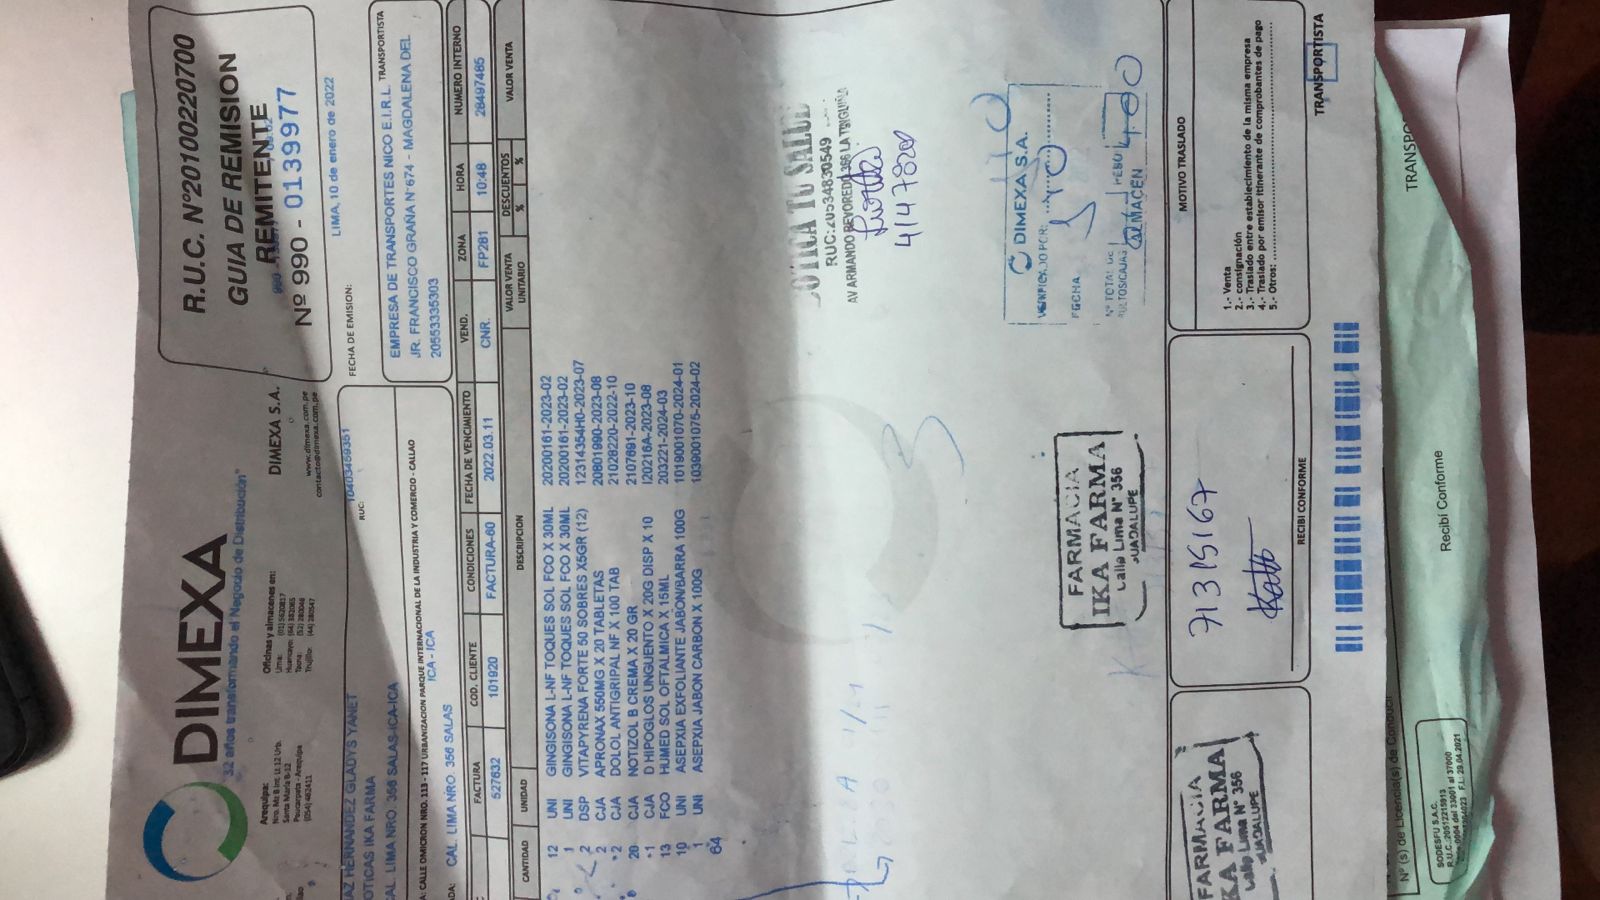 DIMEXA
32 años transformando el Negocio de Distribución"
R.U.C. Nº20100220700
GUIA DE REMISION
REMITENTE
Nº 990 - 0139977
Arequipa:
Nro. Mz B Int. Lt 12 Urb.
Santa María B-12
Paucarpata - Arequipa
(054) 462411
Oficinas y almacenes en:
Lima: (01) 5620817
Huancayo: (64) 382065
Tacna: (52) 280046
Trujillo: (44) 280547
DIMEXA S.A.
www.dimexa.com.pe
contacto@dimexa.com.pe
FECHA DE EMISION:
LIMA, 10 de enero de 2022
AZ HERNANDEZ GLADYS YANET
OTICAS IKA FARMA
CAL. LIMA NRO 356 SALAS-ICA-ICA
RUC: 10403459351
EMPRESA DE TRANSPORTES NICO E.I.R.L. TRANSPORTISTA
JR. FRANCISCO GRAÑA N°674 - MAGDALENA DEL
20553335303
A: CALLE OMICRON NRO. 113 - 117 URBANIZACION PARQUE INTERNACIONAL DE LA INDUSTRIA Y COMERCIO - CALLAO
ADA: CAL. LIMA NRO. 356 SALAS ICA - ICA
FACTURA COD. CLIENTE CONDICIONES FECHA DE VENCIMIENTO VEND. ZONA HORA NUMERO INTERNO
527632 101920 FACTURA-60 2022.03.11 CNR. FP281 10:48 28497485
CANTIDAD UNIDAD DESCRIPCION VALOR VENTA UNITARIO DESCUENTOS % % VALOR VENTA
12 UNI GINGISONA L-NF TOQUES SOL FCO X 30ML 20200161-2023-02
1 UNI GINGISONA L-NF TOQUES SOL FCO X 30ML 20200161-2023-02
2 DSP VITAPYRENA FORTE 50 SOBRES X5GR (12) 12314354H0-2023-07
2 CJA APRONAX 550MG X 20 TABLETAS 20801990-2023-08
2 CJA DOLOL ANTIGRIPAL NF X 100 TAB 21028220-2022-10
20 CJA NOTIZOL B CREMA X 20 GR 2107691-2023-10
1 CJA D HIPOGLOS UNGUENTO X 20G DISP X 10 I20216A-2023-08
13 FCO HUMED SOL OFTALMICA X 15ML 203221-2024-03
10 UNI ASEPXIA EXFOLIANTE JABON/BARRA 100G 1019001070-2024-01
1 UNI ASEPXIA JABON CARBON X 100G 1039001075-2024-02
64
BOTICA TU SALUD
RUC:20534830549
AV ARMANDO REVOREDO 356 LA TINGUIÑA
41147820
DIMEXA S.A.
VERIFICADO POR:
FECHA
Nº TOTAL DE
BULTOS/CAJAS PESO
ALMACÉN
FARMACIA
IKA FARMA
Calle Lima Nº 356
GUADALUPE
FARMACIA
IKA FARMA
Calle Lima Nº 356
GUADALUPE
71315167
RECIBI CONFORME
MOTIVO TRASLADO
1.- Venta
2.- consignación
3.- Traslado entre establecimiento de la misma empresa
4.- Traslado por emisor itinerante de comprobantes de pago
5.- Otros:
TRANSPORTISTA
Nº (s) de Licencia(s) de Conducir
SODESFU S.A.C.
R.U.C.:20512215913
Recibí Conforme
TRANSPO